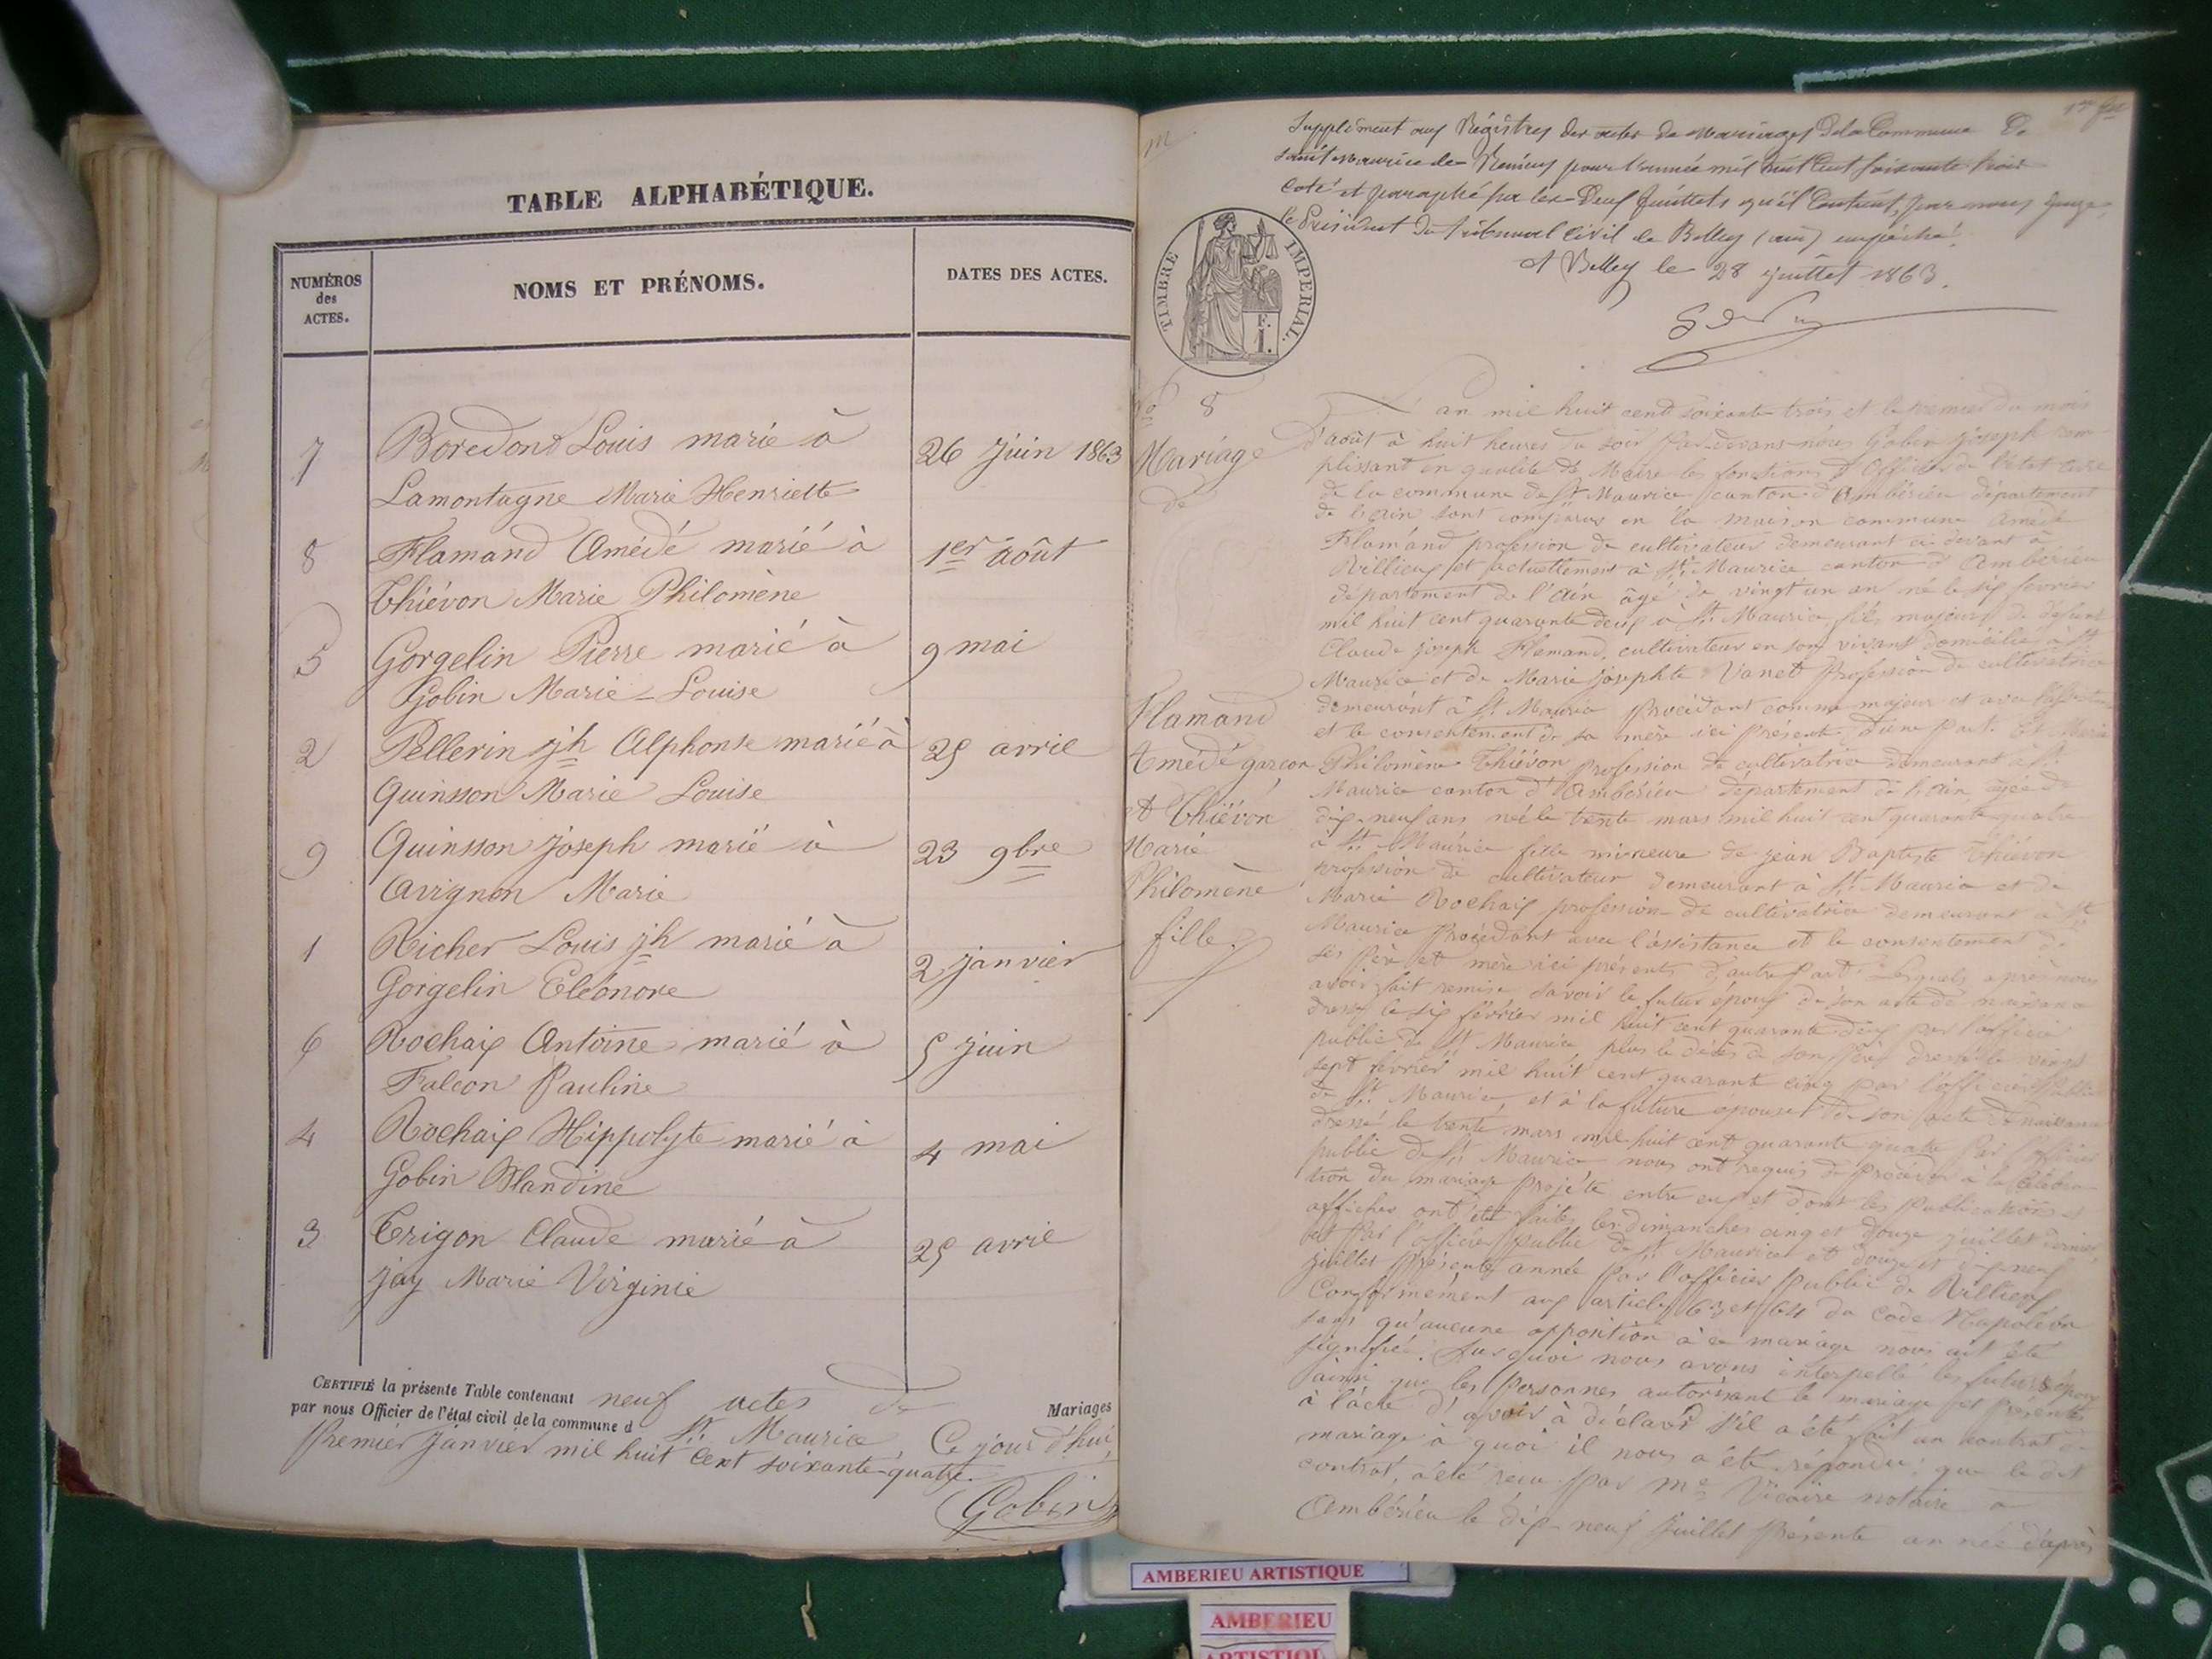 TABLE ALPHABÉTIQUE.
NUMÉROS des ACTES.
NOMS ET PRÉNOMS.
DATES DES ACTES.
7 Boredont Louis marié à 26 Juin 1863
Lamontagne Marie Henriette
8 Flamand Amédé marié à 1er août
Thiévon Marie Philomène
5 Gorgelin Pierre marié à 9 mai
Gobin Marie-Louise
2 Pellerin jh Alphonse marié à 25 avril
Quinsson Marie Louise
9 Quinsson Joseph marié à 23 9bre
Avignon Marie
1 Richer Louis jh marié à 2 janvier
Gorgelin Eléonore
6 Rochaix Antoine marié à 5 Juin
Falcon Pauline
4 Rochaix Hippolyte marié à 4 mai
Gobin Blandine
3 Trigon Claude marié à 25 avril
Jay Marie Virginie
CERTIFIÉ la présente Table contenant neuf actes de Mariages
par nous Officier de l'état civil de la commune d St. Maurice, Ce jour d'hui
Premier Janvier mil huit cent soixante-quatre
Gobin
Supplément aux Régistres des actes de mariages de la Commune de
saint maurice de Remens pour l'année mil huit cent soixante trois
Coté et paraphé par les Deux feuillets qu'il Contient, par nous Juge,
le Président du tribunal Civil de Belley (ain) empêché.
A Belley le 28 juillet 1863.
TIMBRE IMPERIAL.
F.
1.
No 8
Mariage
de
Flamand
Amédé garçon
et Thiévon
Marie
Philomène
fille.
L'an mil huit cent soixante trois et le premier du mois
d'août à huit heures du soir Par-devant nous Gobin Joseph rem
plissant en qualité de Maire les fonctions d'Officier de l'état civil
de la commune de St Maurice canton d'Ambérieu département
de l'ain sont comparus en la maison commune Amédé
Flamand profession de cultivateur demeurant ci devant à
Rillieux et actuellement à St. Maurice canton d'Ambérieu
département de l'Ain âgé de vingt un an né le six février
mil huit cent quarante deux à St. Maurice fils majeur de défunt
Claude joseph Flamand, cultivateur en son vivant domicilié à St
Maurice et de Marie josephte Vanet Profession de cultivatrice
demeurant à St. Maurice Procédant comme majeur et avec
et le consentement de sa mère ici présente d'une part. Et Marie
Philomène Thiévon profession de cultivatrice demeurant à St.
Maurice canton d'Ambérieu département de l'ain âgée de
dix-neuf ans née le trente mars mil huit cent quarante quatre
à St. Maurice fille mineure de jean Baptiste Thiévon
profession de cultivateur demeurant à St. Maurice et de
Marie Rochaix profession de cultivatrice demeurant à St
Maurice Procédant avec l'assistance et le consentement de
ses Père et mère ici présents d'autre Part. Lesquels après nous
avoir fait remise savoir le futur époux de son acte de naissance
dressé le six février mil huit cent quarante deux par l'officier
public de St Maurice plus le décès de son Père dressé le vingt
sept février mil huit cent quarante cinq par l'officier Public
de St. Maurice, et à la future épouse de son acte de naissance
dressé le trente mars mil huit cent quarante quatre Par l'officier
public de St. Maurice nous ont requis de Procéder à la célébra
tion du mariage Projeté entre eux et dont les Publications et
affiches ont été faites les dimanches cinq et douze juillet dernier
Par l'officier Public de St. Maurice et douze et dix neuf
juillet Présente année par l'officier Public de Rillieux
Conformément aux articles 63 et 64 du Code Napoléon
sans qu'aucune opposition à ce mariage nous ait été
signifié. Sur quoi nous avons interpellé les futurs époux
ainsi que les Personnes autorisant le mariage et Présentes
à l'acte d'avoir à déclarer s'il a été fait un contrat de
mariage à quoi il nous a été répondu: que le dit
contrat, a été reçu Par Me Vicaire notaire à
Ambérieu le dix-neuf Juillet Présente année d'après
AMBERIEU ARTISTIQUE
AMBERIEU
ARTISTIQUE